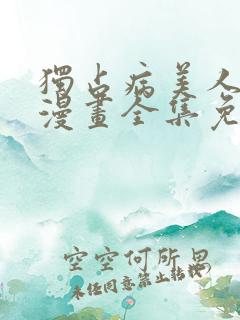 獨占病美人
漫畫全集免
空空何所思
未任同意禁止转载